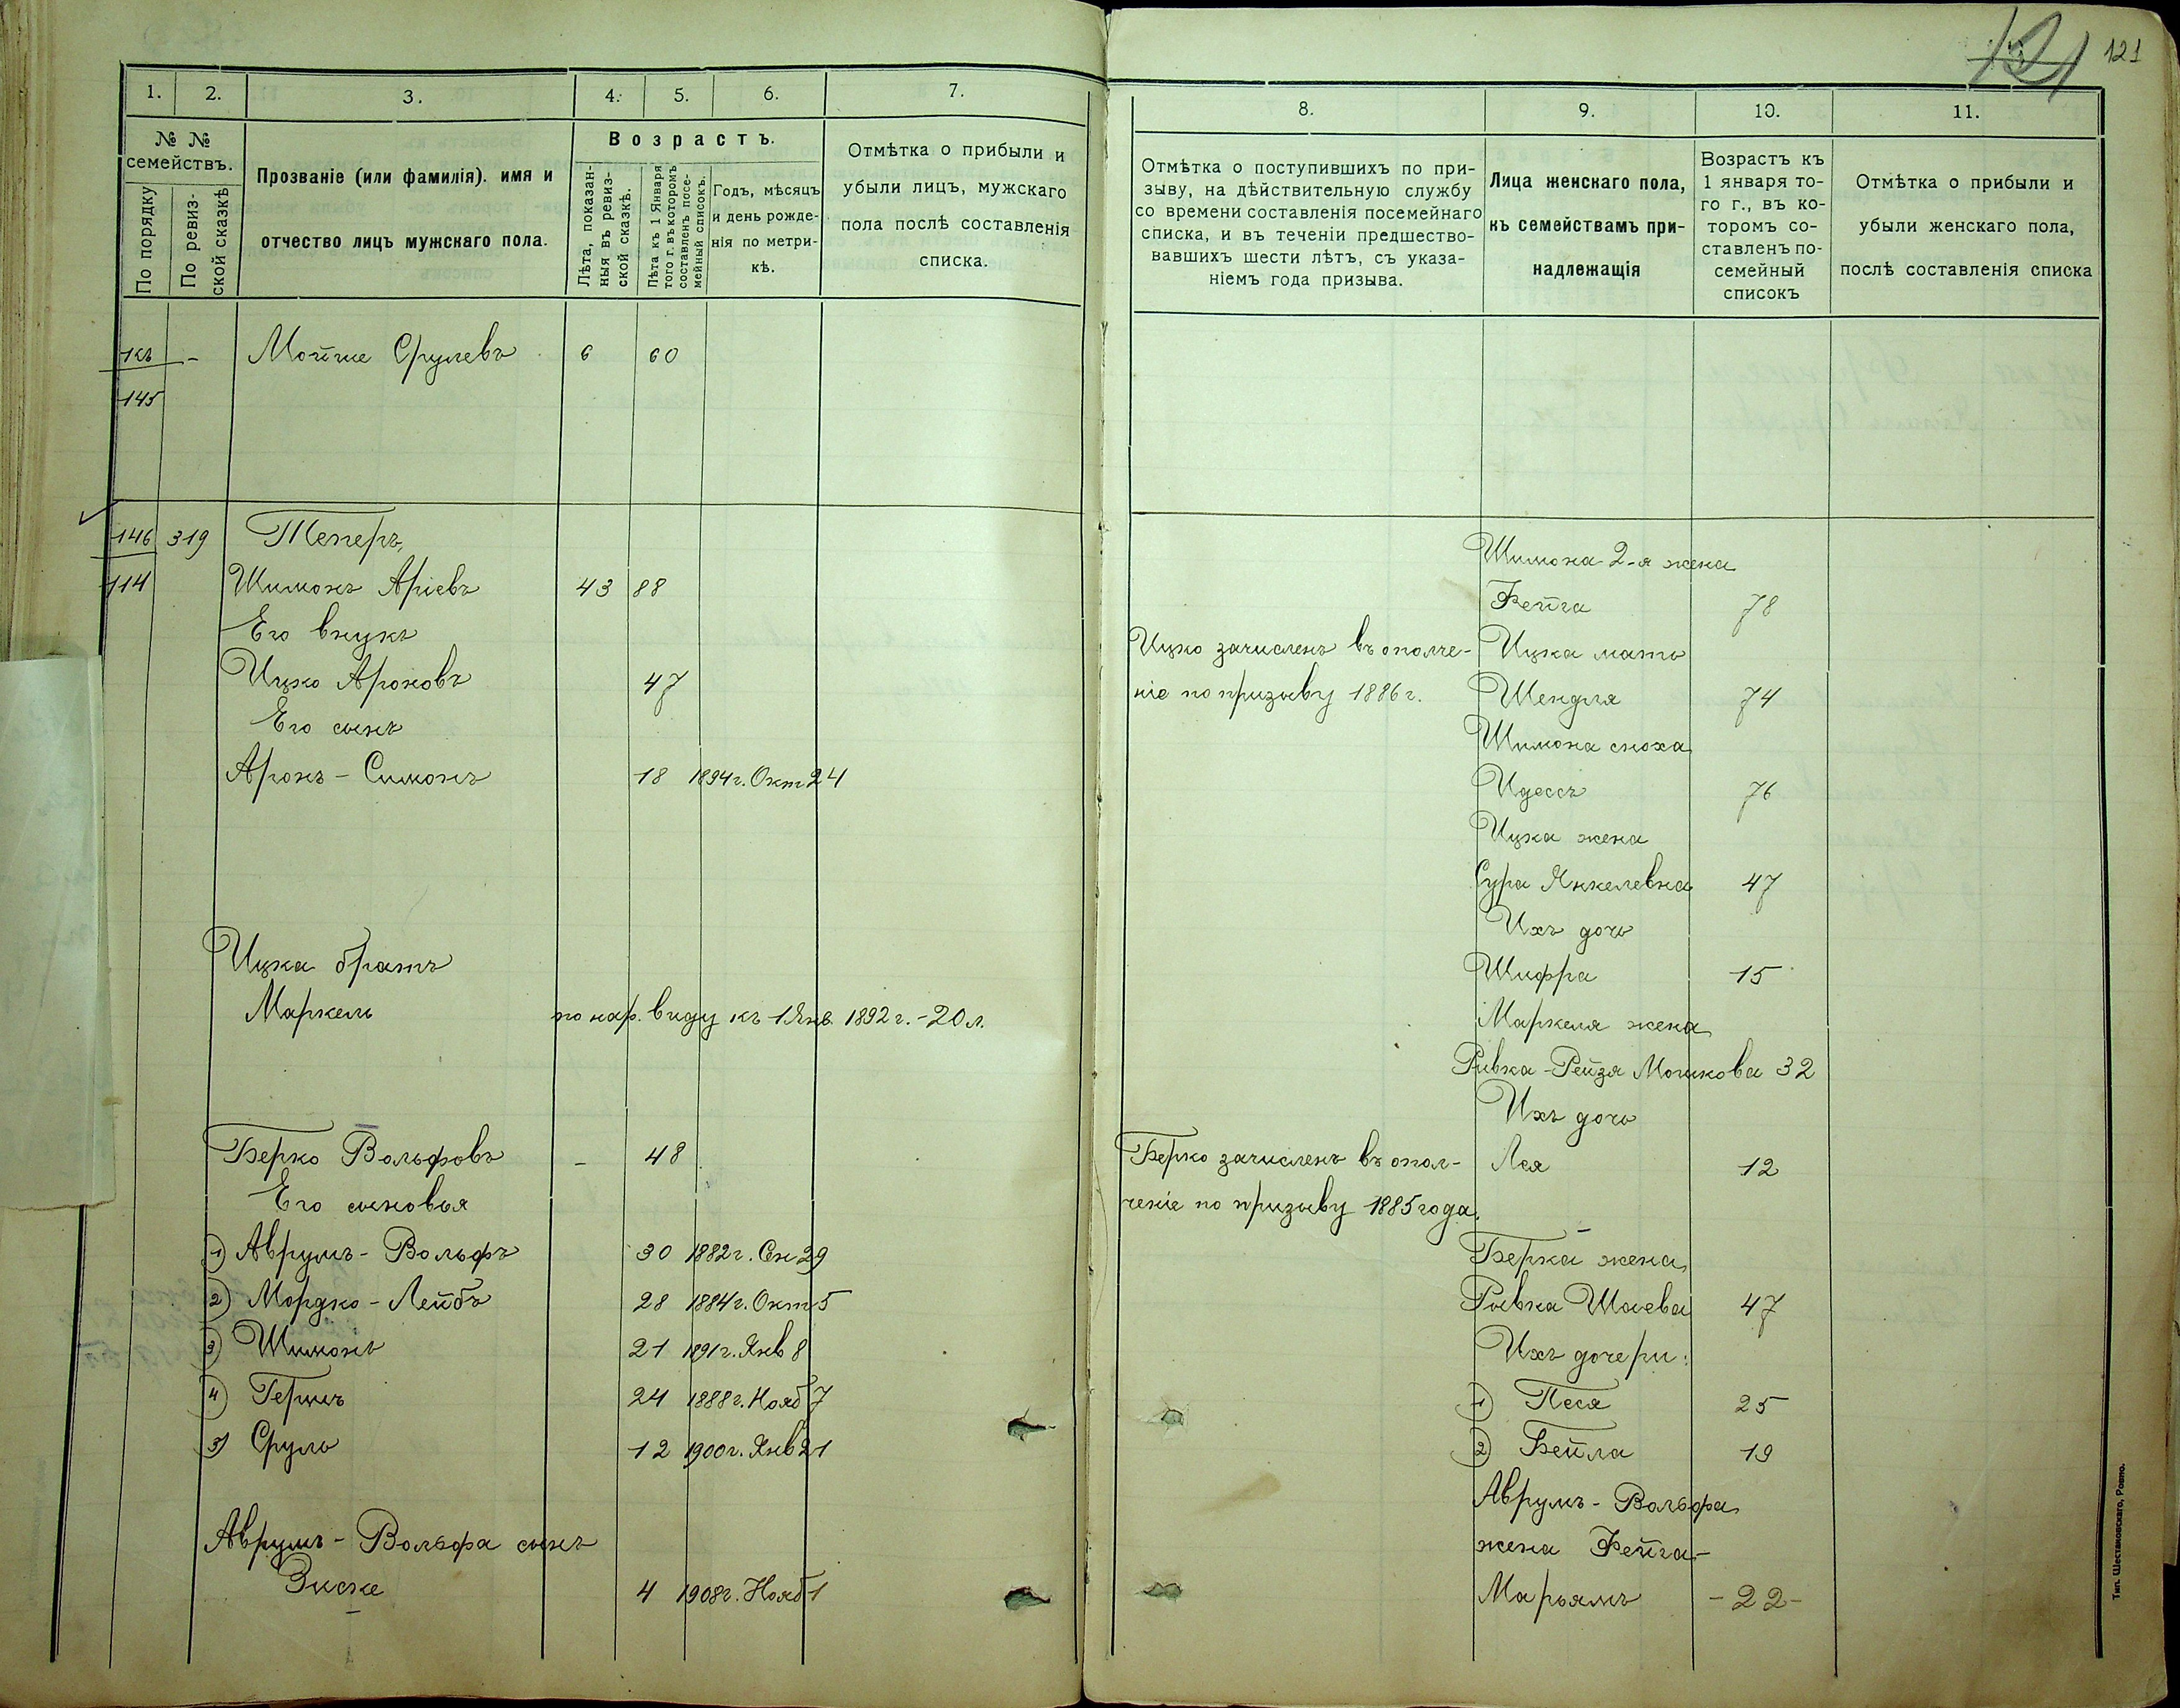 121 121
1. 2. 3. 4. 5. 6. 7.
№ № семействъ.
По порядку
По ревизской сказкѣ
Прозваніе (или фамилія). имя и
отчество лицъ мужскаго пола.
Возрастъ.
Лѣта, показан-
ныя въ ревиз-
ской сказкѣ.
Лѣта къ 1 Января
того г. въ которомъ
составленъ посе-
мейный списокъ.
Годъ, мѣсяцъ
и день рожде-
нія по метри-
кѣ.
Отмѣтка о прибыли и
убыли лицъ, мужскаго
пола послѣ составленія
списка.
къ - Мойше Срулевъ 6 60
145
146 319 Теперъ
114 Шимонъ Аріевъ 43 88
Его внукъ
Ицко Ароновъ 47
Его сынъ
Аронъ-Симонъ 18 1894г. Окт 24
Ицка братъ
Маркель по нар. виду къ 1 Янв. 1892 г. - 20 л.
Берко Вольфовъ - 48
Его сыновья
1) Аврумъ-Вольфъ 30 1882г. Сен 29
2) Мордко-Лейбъ 28 1884г. Окт 5
3) Шимонъ 21 1891г. Янв 8
4) Гершъ 24 1888г. Нояб 7
5) Сруль 12 1900г. Янв 21
Аврумъ-Вольфа сынъ
Зиске 4 1908г. Нояб 1
8. 9. 10. 11.
Отмѣтка о поступившихъ по при-
зыву, на дѣйствительную службу
со времени составленія посемейнаго
списка, и въ теченіи предшество-
вавшихъ шести лѣтъ, съ указа-
ніемъ года призыва.
Лица женскаго пола,
къ семействамъ при-
надлежащія
Возрастъ къ
1 января то-
го г., въ ко-
торомъ со-
ставленъ по-
семейный
списокъ
Отмѣтка о прибыли и
убыли женскаго пола,
послѣ составленія списка
Шимона 2-я жена
Фейга 78
Ицко зачисленъ въ ополче- Ицка мать
ніе по призыву 1886 г. Шендля 74
Шимона сноха
Идессъ 76
Ицка жена
Сура Янкелевна 47
Ихъ дочь
Шифра 15
Маркеля жена
Ривка-Рейзя Мошкова 32
Ихъ дочь
Берко зачисленъ въ опол- Лея 12
ченіе по призыву 1885 года.
Берка жена
Рывка Шаева 47
Ихъ дочери:
1) Песя 25
2) Бейла 19
Аврумъ-Вольфа
жена Фейга-
Марьямъ -22-
Тип. Шестаковскаго, Ровно.